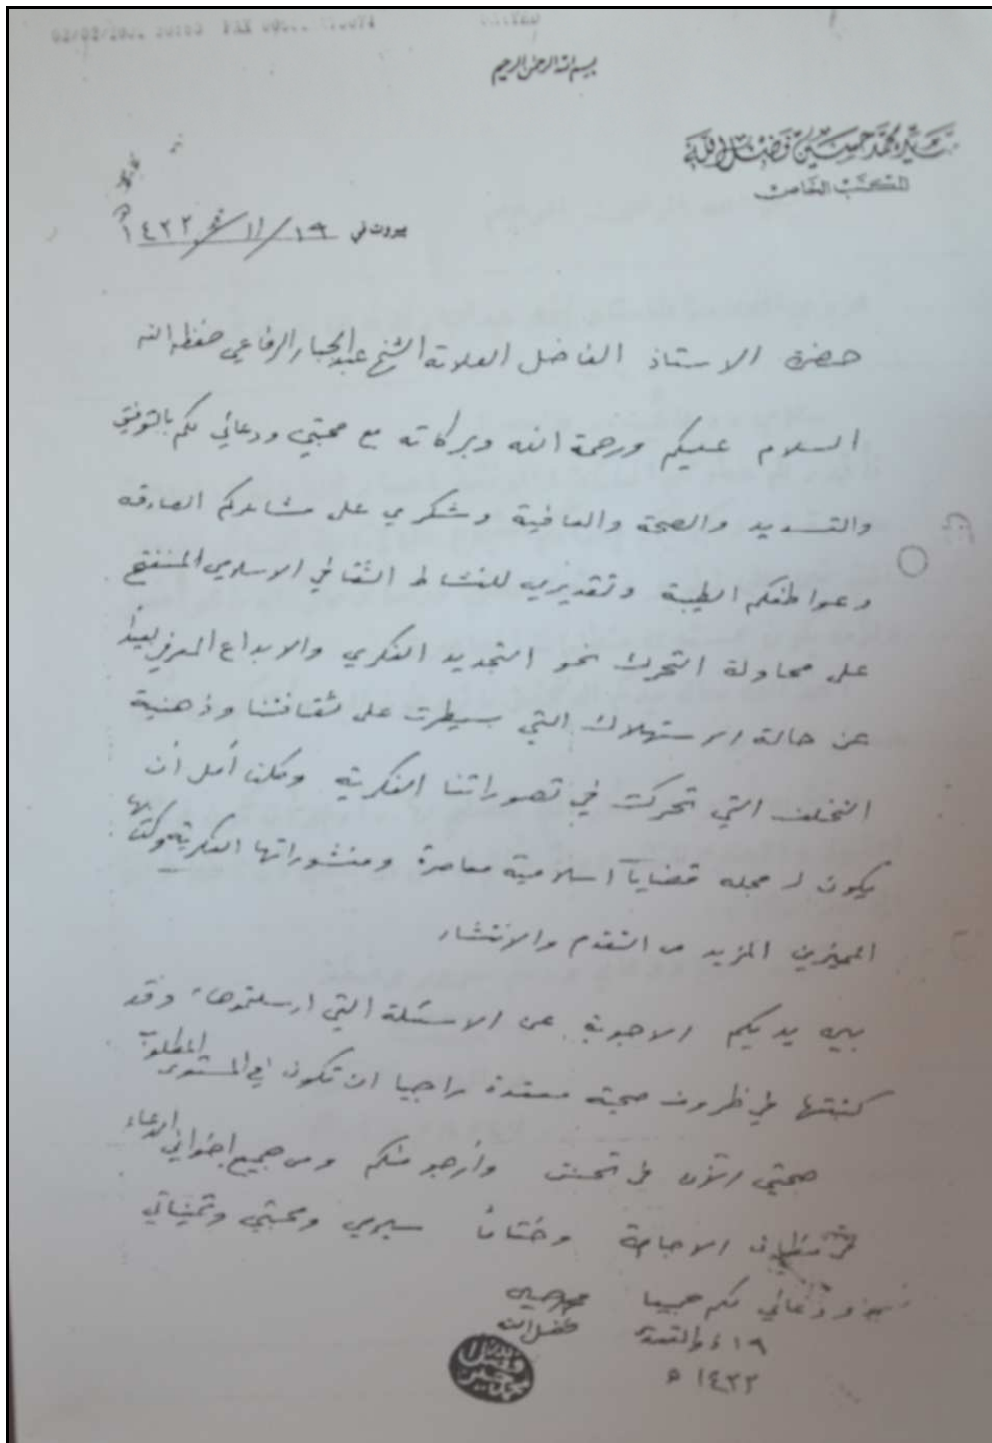 بسم الله الرحمن الرحيم
السيد محمد حسين فضل الله
المكتب الخاص
بيروت في ١٩/١١/١٤٢٢
حضرة الاستاذ الفاضل العلامة الشيخ عبدالجبار الرفاعي حفظه الله
السلام عليكم ورحمة الله وبركاته مع محبتي ودعائي لكم بالتوفيق
والتسديد والصحة والعافية وشكري على مشاعركم الصادقه
وعواطفكم الطيبة وتقديري للنشاط الثقافي الاسلامي المنفتح
على محاولة التحرك نحو التجديد الفكري والابداع المعرفي بعيداً
عن حالة الاستهلاك التي سيطرت على ثقافتنا وذهنية
التخلف التي تحركت في تصوراتنا الفكرية وكلنا أمل أن
يكون لـ مجله قضايا اسلامية معاصرة ومنشوراتها الفكرية وكتابها
المميزين المزيد من التقدم والانتشار
بين يديكم الاجوبة عن الاسئلة التي ارسلتموها، وقد
كتبتها في ظروف صحية معقدة راجيا ان تكون في المستوى المطلوب
صحتي الآن في تحسن وأرجو منكم ومن جميع اخواني الدعاء
في مظان الاجابة وختاماً سلامي ومحبتي وتمنياتي
ودعائي لكم جميعا
محمد حسين
فضل الله
١٩ ذوالقعدة
١٤٢٢ هـ